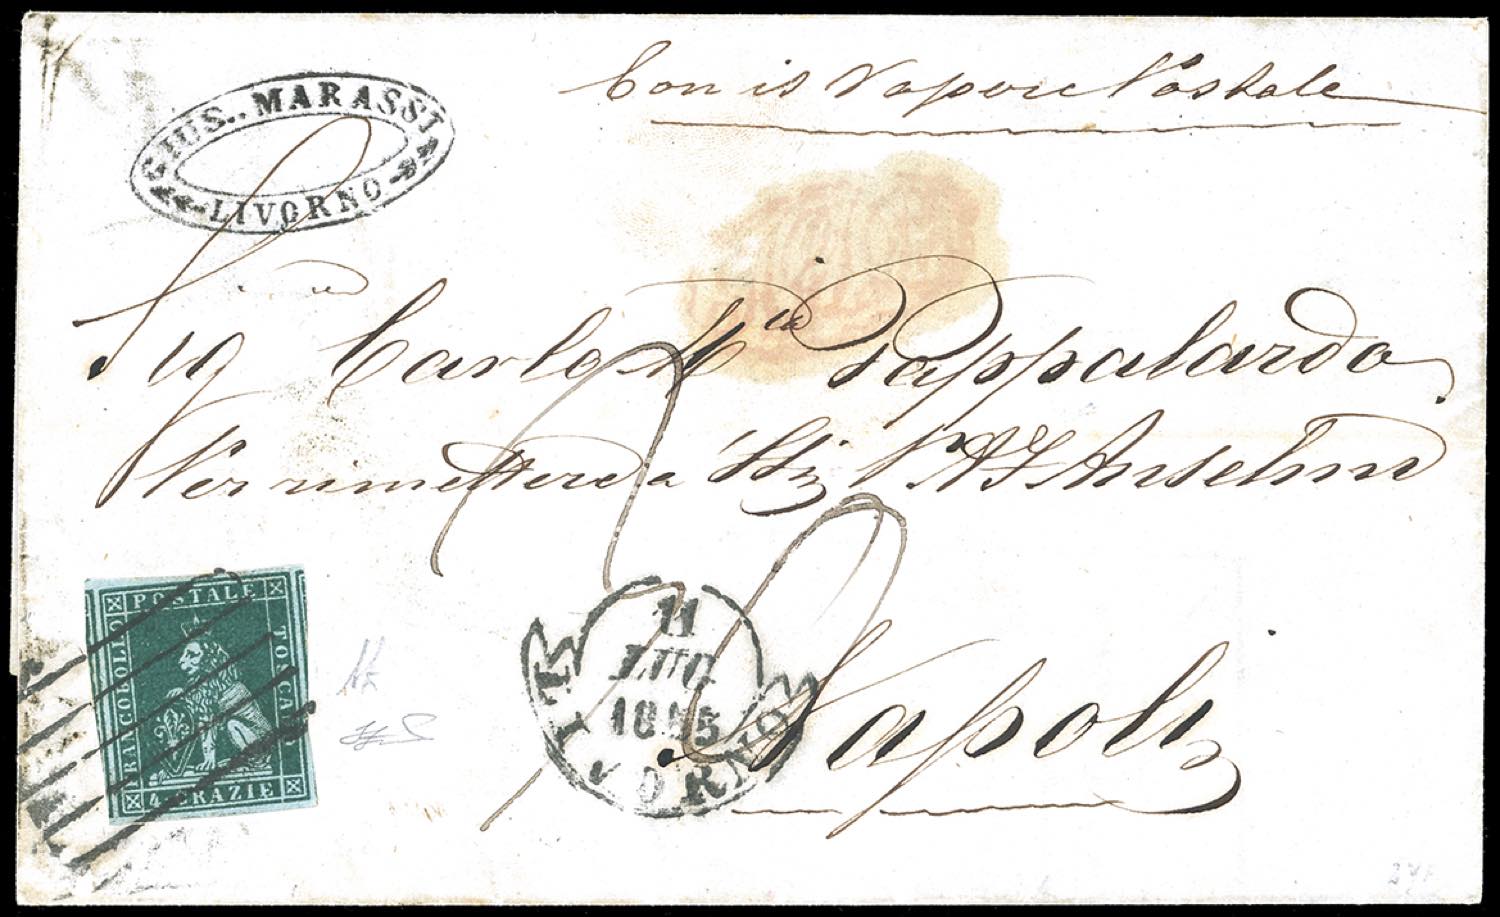 Con il Vapore Postale
GIUS. MARASSI
LIVORNO
Sig Carlo Ma Pappalardo
Per rimettere a
Napoli
11
LUG
1855
LIVORNO
POSTALE
FRANCOBOLLO
TOSCANO
4 CRAZIE